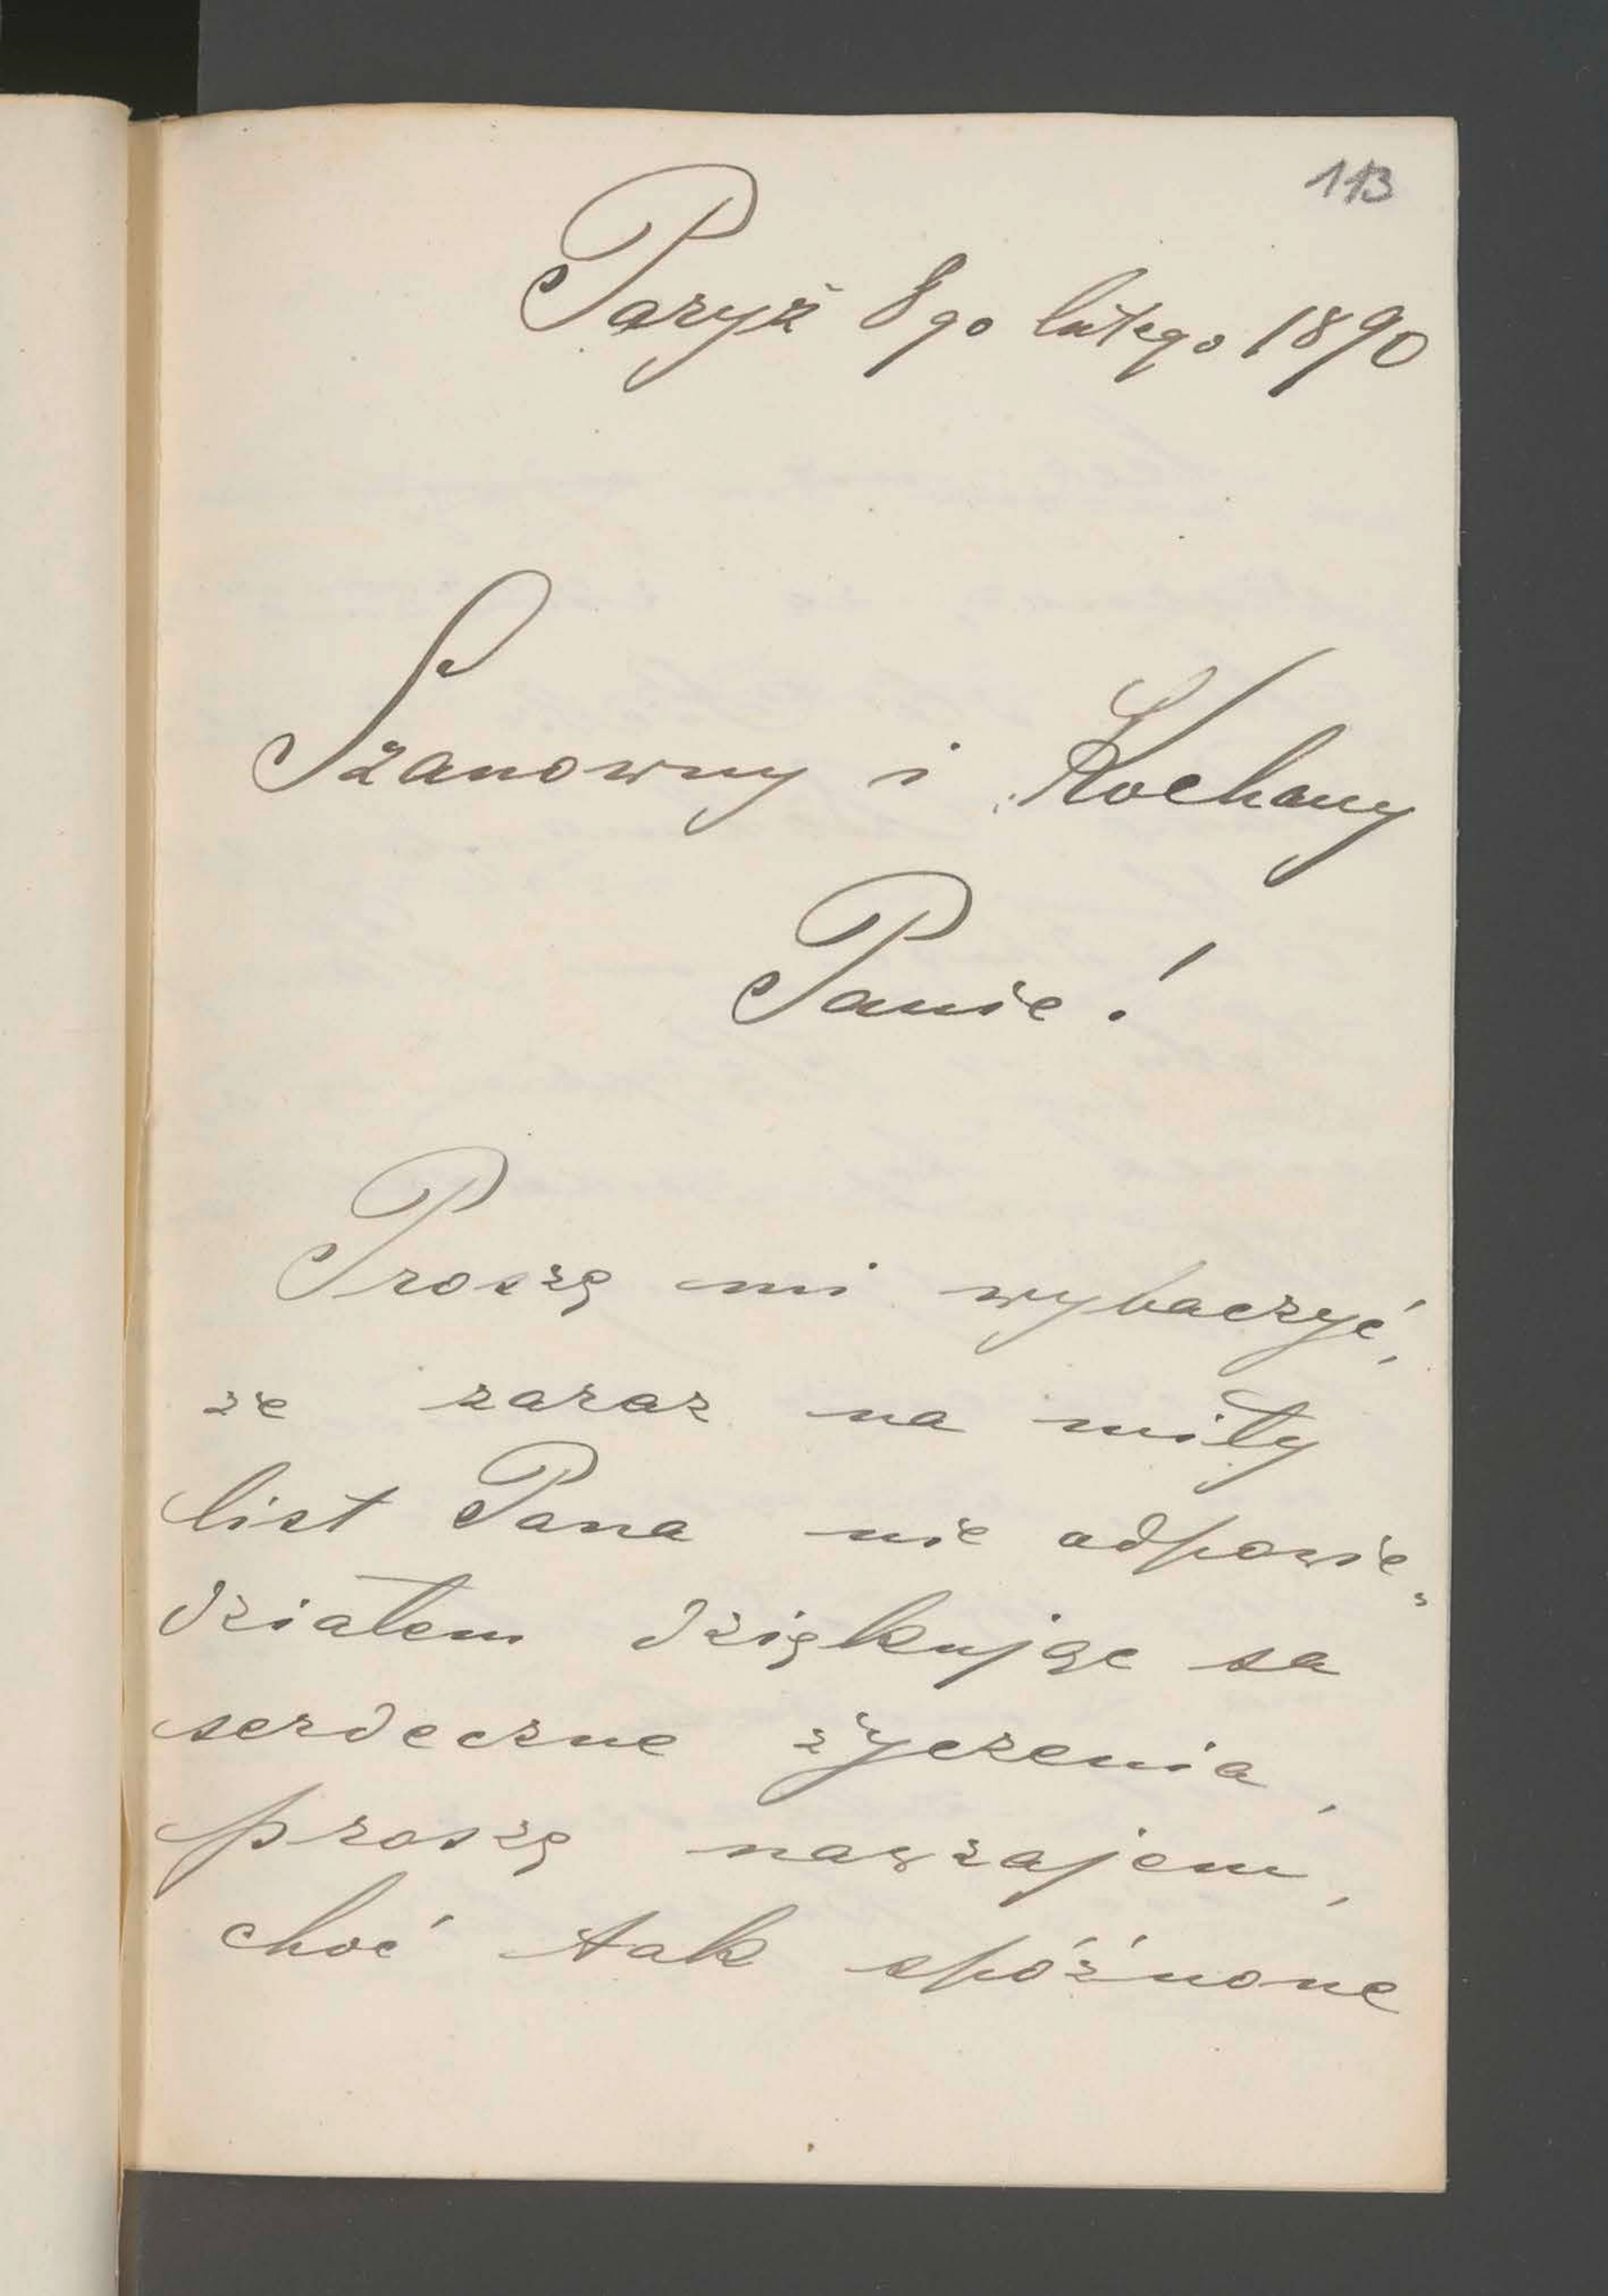 113
Paryż 8go lutego 1890
Szanowny i Kochany
Panie!
Proszę mi wybaczyć,
że zaraz na miły
list Pana nie odpowie=
działem dziękując za
serdeczne życzenia,
proszę nawzajem,
choć tak spóźnone